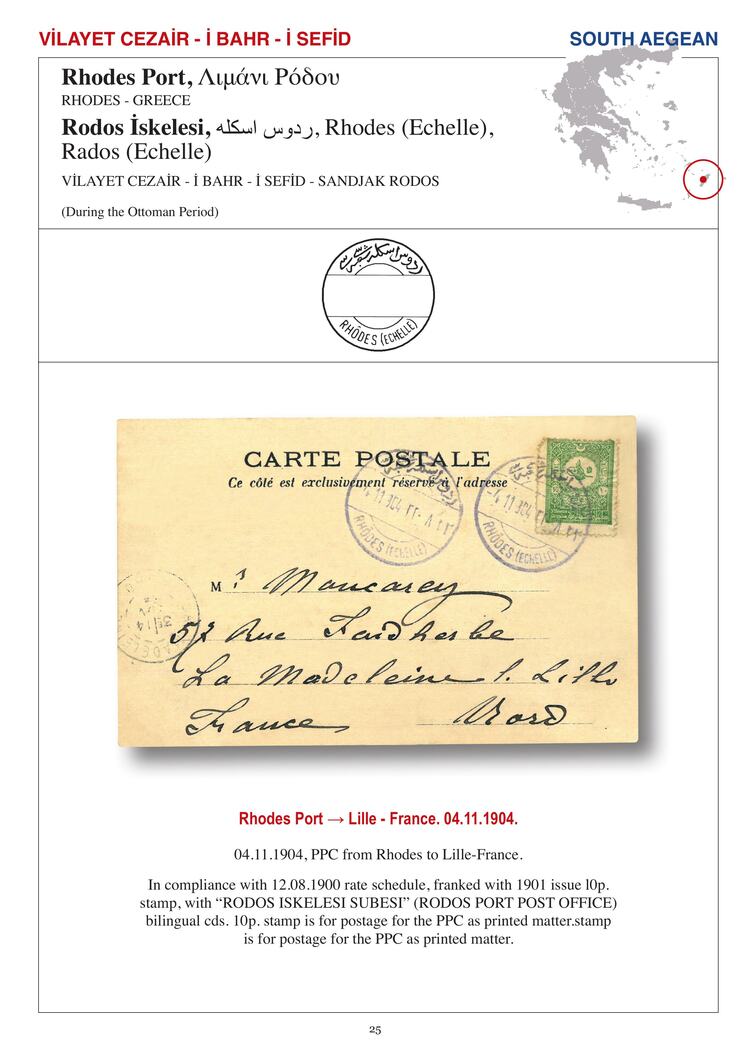 VİLAYET CEZAİR - İ BAHR - İ SEFİD
SOUTH AEGEAN
Rhodes Port, Λιμάνι Ρόδου
RHODES - GREECE
Rodos İskelesi, ردوس اسكله, Rhodes (Echelle),
Rados (Echelle)
VİLAYET CEZAİR - İ BAHR - İ SEFİD - SANDJAK RODOS
(During the Ottoman Period)
ردوس اسكله شعبه سى
RHÔDES (ECHELLE)
CARTE POSTALE
Ce côté est exclusivement réservé à l'adresse
RHÔDES (ECHELLE)
RHÔDES (ECHELLE)
M
57 Rue Faidherbe
La Madeleine l. Lille
France Nord
Rhodes Port → Lille - France. 04.11.1904.
04.11.1904, PPC from Rhodes to Lille-France.
In compliance with 12.08.1900 rate schedule, franked with 1901 issue l0p.
stamp, with “RODOS ISKELESI SUBESI” (RODOS PORT POST OFFICE)
bilingual cds. 10p. stamp is for postage for the PPC as printed matter.stamp
is for postage for the PPC as printed matter.
25